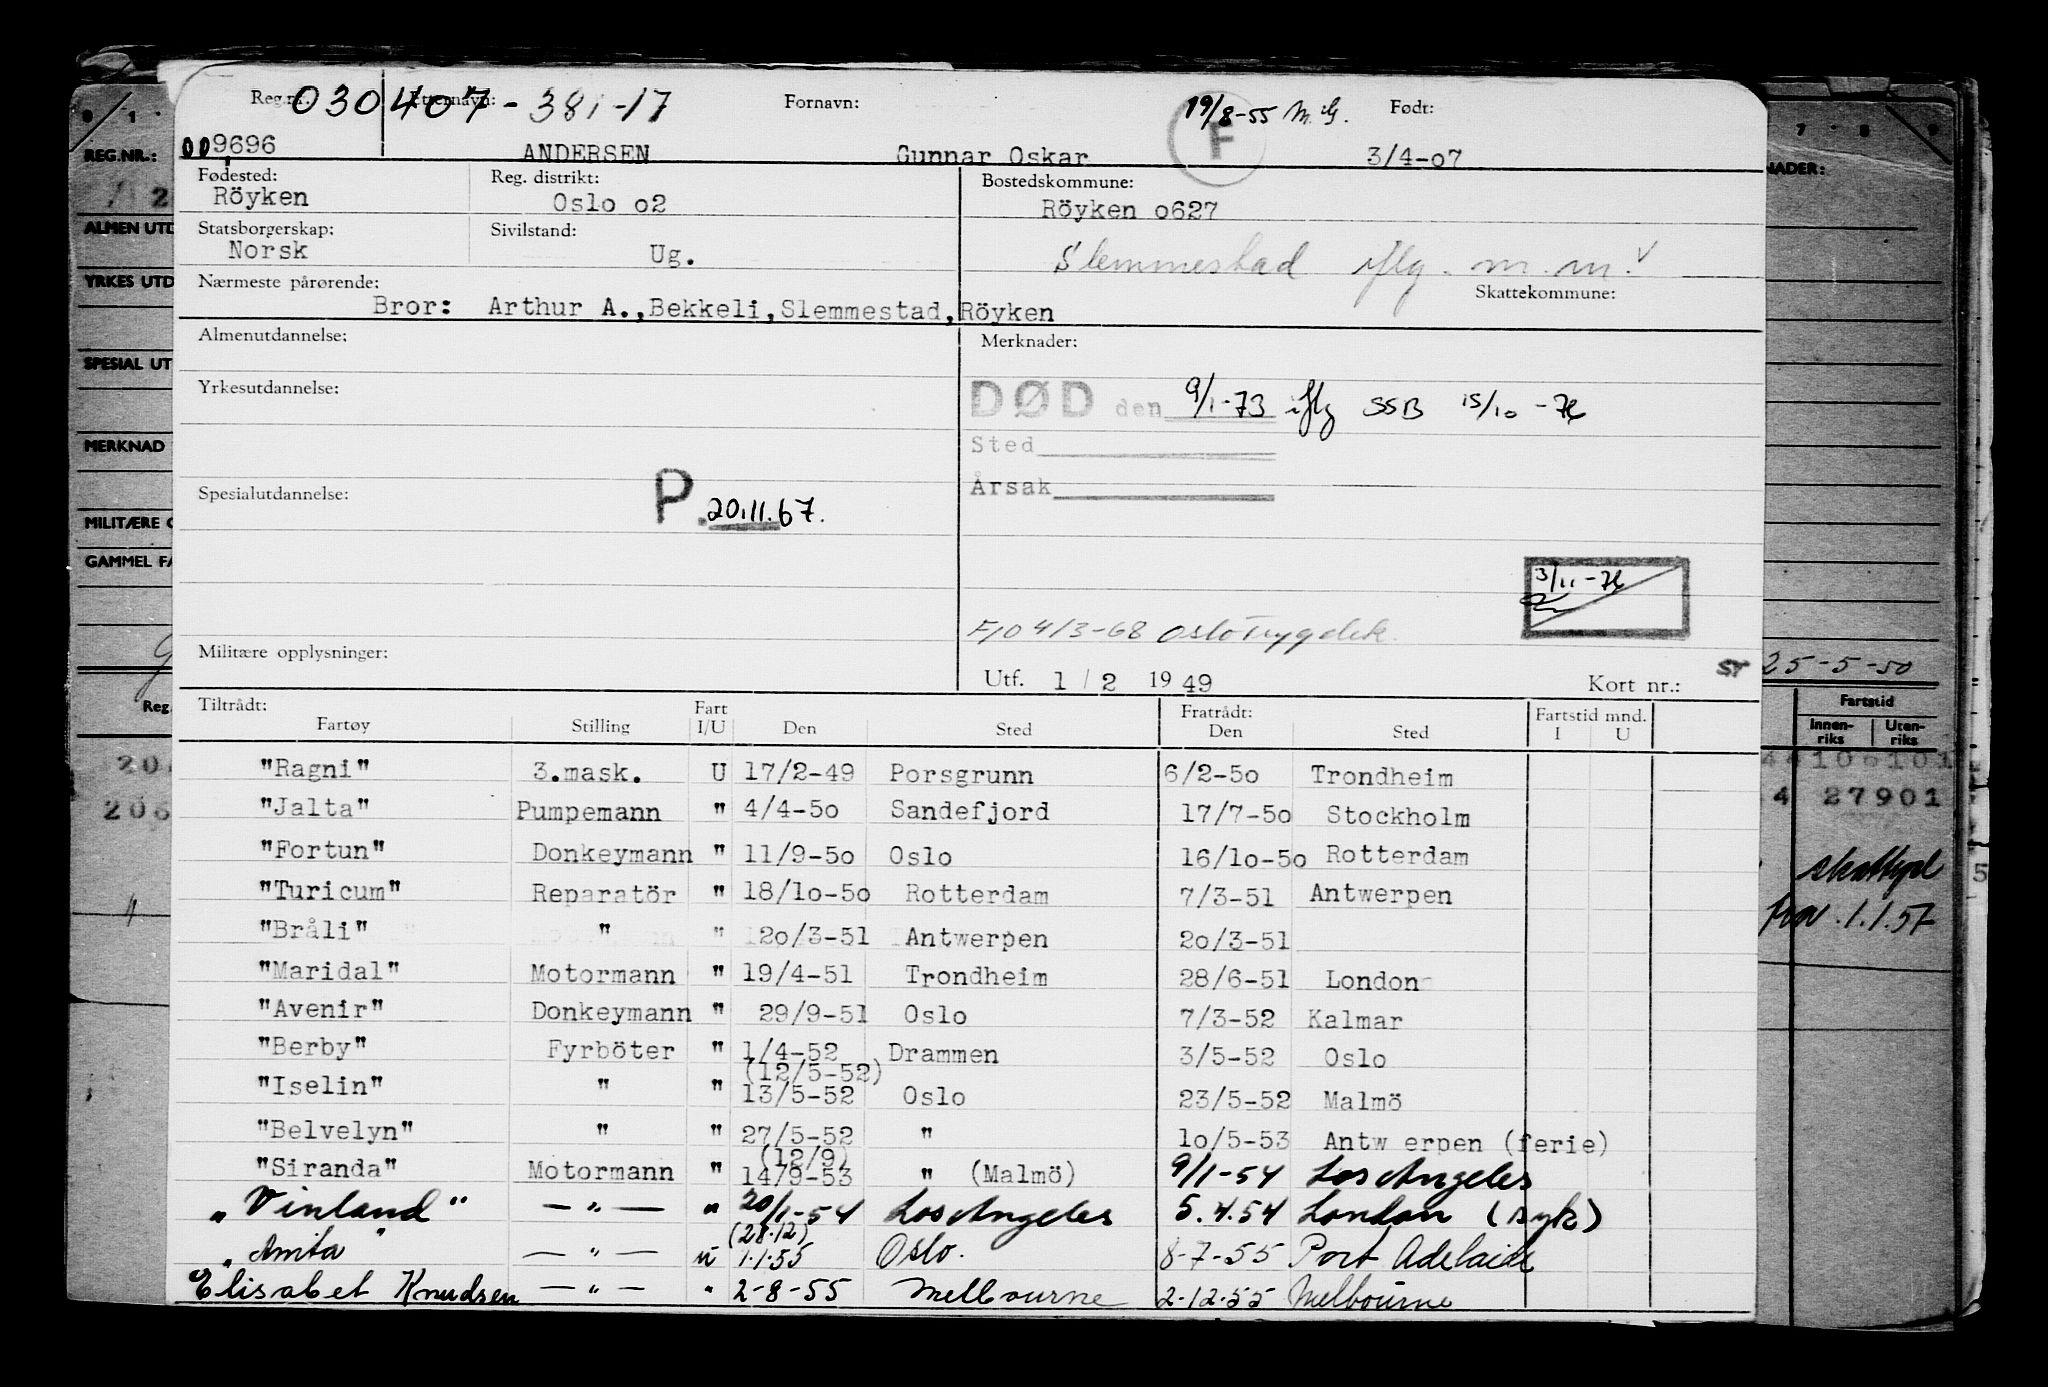 Reg.nr. 030407-381-17 Etternavn: Fornavn: 19/8-55 M.G. Født:
009696 ANDERSEN Gunnar Oskar F 3/4-07
Fødested: Reg. distrikt: Bostedskommune:
Röyken Oslo o2 Röyken o627
Statsborgerskap: Sivilstand:
Norsk Ug. Slemmestad iflg. m.m. v
Nærmeste pårørende: Skattekommune:
Bror: Arthur A.,Bekkeli,Slemmestad,Röyken
Almenutdannelse: Merknader:
Yrkesutdannelse: DØD den 9/1-73 iflg SSB 15/10-76
Sted
Årsak
Spesialutdannelse: P. 20.11.67.
3/11-76
F/O 4/3-68 Oslo Trygdek.
Militære opplysninger:
Utf. 1 / 2 19 49 Kort nr.: ST
Tiltrådt: Fart Fratrådt: Fartstid mnd.
Fartøy Stilling I/U Den Sted Den Sted I U
"Ragni" 3.mask. U 17/2-49 Porsgrunn 6/2-5o Trondheim
"Jalta" Pumpemann " 4/4-5o Sandefjord 17/7-5o Stockholm
"Fortun" Donkeymann " 11/9-5o Oslo 16/1o-5o Rotterdam
"Turicum" Reparatör " 18/1o-5o Rotterdam 7/3-51 Antwerpen
"Bråli" " " 2o/3-51 Antwerpen 2o/3-51
"Maridal" Motormann " 19/4-51 Trondheim 28/6-51 London
"Avenir" Donkeymann " 29/9-51 Oslo 7/3-52 Kalmar
"Berby" Fyrböter " 1/4-52 Drammen 3/5-52 Oslo
(12/5-52)
"Iselin" " " 13/5-52 Oslo 23/5-52 Malmö
"Belvelyn" " " 27/5-52 " 1o/5-53 Antw erpen (ferie)
(12/9)
"Siranda" Motormann " 14/9-53 " (Malmö) 9/1-54 Los Angeles
„Vinland" — " — " 20/1-54 Los Angeles 5.4.54 London (syk)
(28.12)
„Anita" — " — u 1.1.55 Oslo. 8-7-55 Port Adelaide
Elisabet Knudsen — " — " 2-8-55 Melbourne 2.12.55 Melbourne
REG.NR.:
ALMEN UTD
YRKES UTD
SPESIAL UT
MERKNAD
MILITÆRE O
GAMMEL FA
Reg.
20
206
7 · 8 · 9
NADER:
25-5-50
Fartstid
Innen-riks Uten-riks
106101
4 27901
skattepl 5
fra 1.1.57